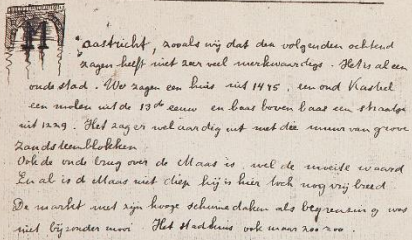 Maastricht, zooals wij dat den volgenden ochtend
zagen heeft niet zeer veel merkwaardigs. Het is al een
oude stad. We zagen een huis uit 1475, een oud Kasteel
een molen uit de 13de eeuw en baas boven baas een straatje
uit 1229. Het zag er wel aardig uit met die muur van grove
Zandsteenblokken
Ook de oude brug over de Maas is wel de moeite waard
En al is d Maas niet diep hij is hier toch nog vrij breed
De markt met zijn hooge schuine daken als begrenzing was
niet bijzonder mooi. Het stadhuis ook maar zoo zoo.